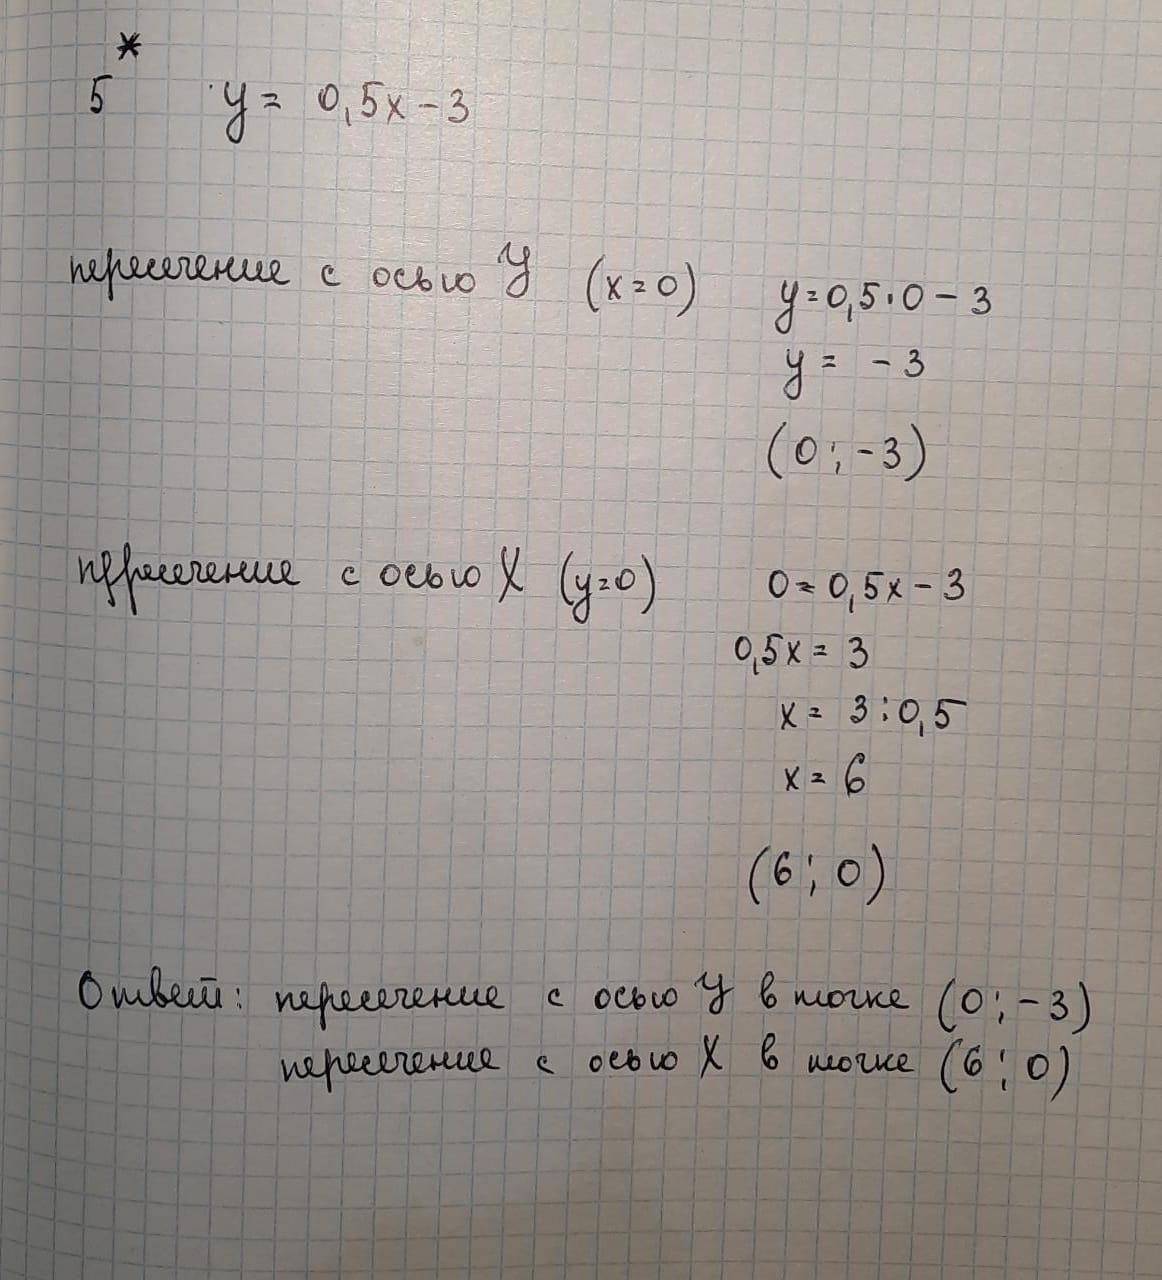 *
5 y = 0,5x - 3
пересечение с осью У (x=0) y=0,5·0-3
y = -3
(0;-3)
пересечение с осью Х (y=0) 0=0,5x-3
0,5x = 3
x = 3:0,5
x = 6
(6;0)
Ответ: пересечение с осью У в точке (0;-3)
пересечение с осью Х в точке (6;0)